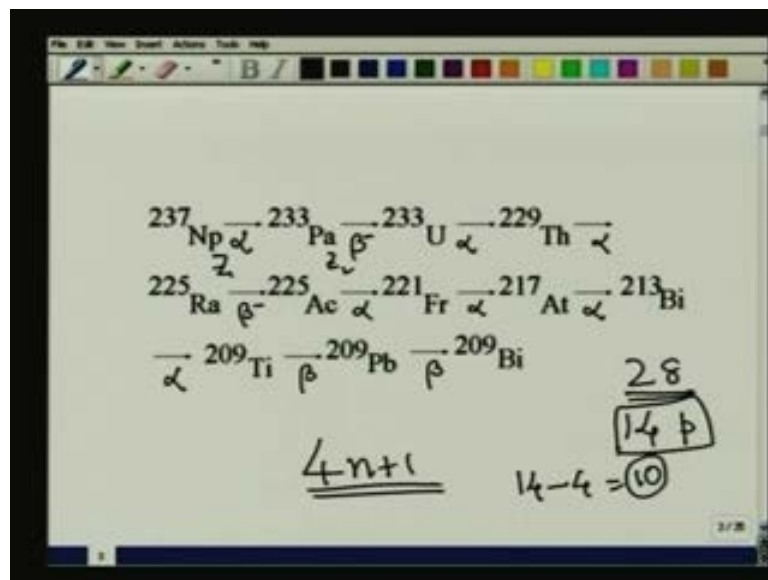 File Edit View Insert Actions Tools Help
B I
237Np α→ 233Pa β-→ 233U α→ 229Th α→
Z
225Ra β-→ 225Ac α→ 221Fr α→ 217At α→ 213Bi
α→ 209Ti β→ 209Pb β→ 209Bi
28
14 p
4n+1
14-4=10